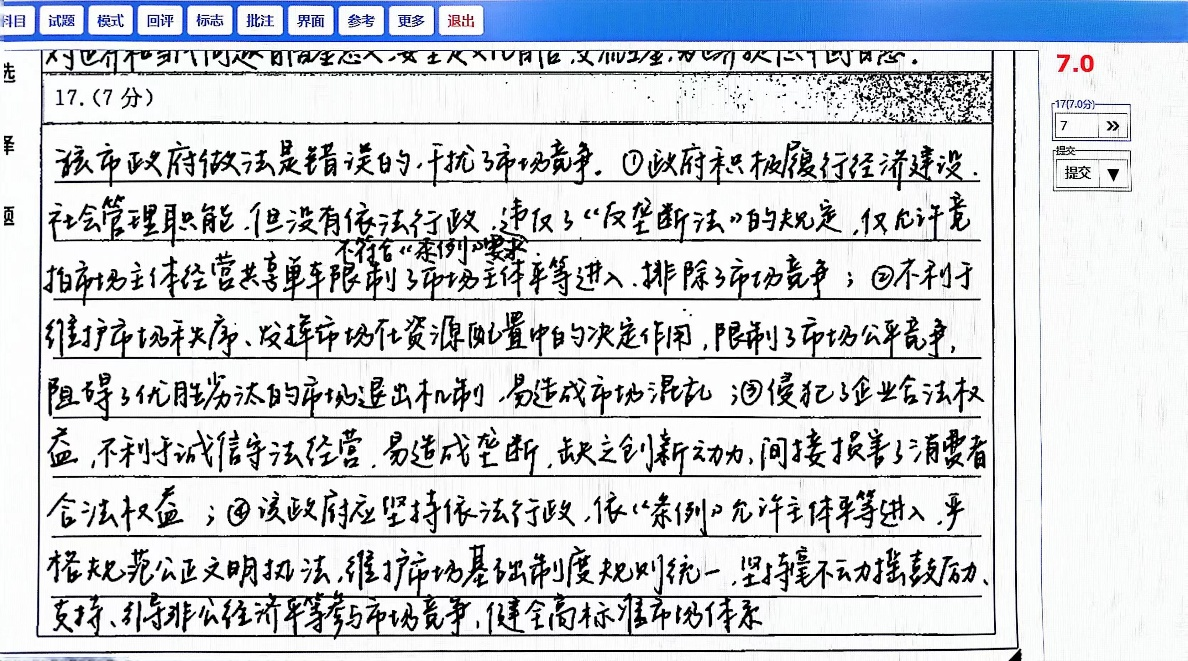 科目 试题 模式 回评 标志 批注 界面 参考 更多 退出
选
择
题
7.0
17(7.0分)
7 »
提交
提交 ▼
17.(7分)
该市政府做法是错误的，干扰了市场竞争。①政府积极履行经济建设、
社会管理职能，但没有依法行政，违反了“反垄断法”的规定，仅允许竞
不符合“条例”要求
拍市场主体经营共享单车限制了市场主体平等进入、排除了市场竞争；②不利于
维护市场秩序、发挥市场在资源配置中的决定作用，限制了市场公平竞争，
阻碍了优胜劣汰的市场退出机制，易造成市场混乱；③侵犯了企业合法权
益，不利于诚信守法经营，易造成垄断，缺乏创新动力，间接损害了消费者
合法权益；④该政府应坚持依法行政，依“条例”允许主体平等进入，严
格规范公正文明执法，维护市场基础制度规则统一，坚持毫不动摇鼓励、
支持、引导非公经济平等参与市场竞争，健全高标准市场体系